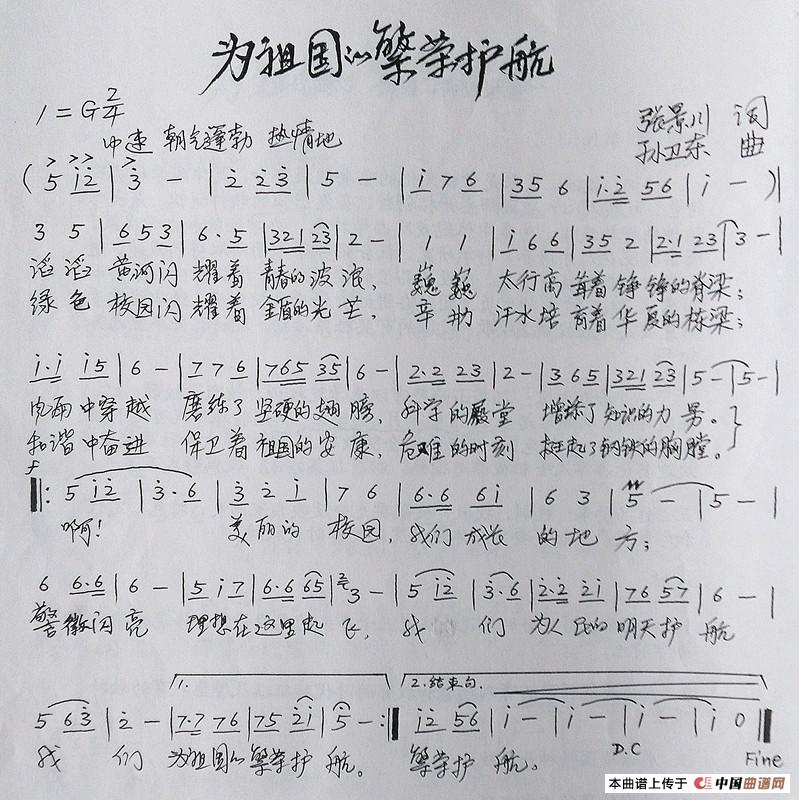 为祖国的繁荣护航
1=G 2/4
中速 朝气蓬勃 热情地
张景川 词
孙卫东 曲
( 5 i2 | 3 - | 2 2 3 | 5 - | i 7 6 | 35 6 | i·2 56 | i - )|
3 5 | 6 5 3 | 6· 5 | 321 23 | 2 - | 1 1 | i 6 6 | 35 2 | 2·1 23 | 3 - |
滔滔 黄河闪 耀着 青春的波浪, 巍巍 太行高 耸着 铮铮的脊梁;
绿色 校园闪 耀着 金盾的光芒, 辛勤 汗水培 育着 华夏的栋梁;
i·i i5 | 6 - | 7 7 6 | 765 35 | 6 - | 2·2 23 | 2 - | 3 6 5 | 321 23 | 5 - | 5 - |
风雨 中穿越 磨练了 坚硬的翅膀, 科学 的殿堂 增添了 知识的力 男。
和谐 中奋进 保卫着 祖国的安康, 危难 的时刻 挺起了 钢铁的胸膛。
f
‖: 5 i2 | 3·6 | 3 2 i | 7 6 | 6·6 6i | 6 3 | 5 - | 5 - |
啊! 美丽的 校园, 我们 成长 的地 方;
6 6·6 | 6 - | 5 i 7 | 6·6 65 | 3 - | 5 i2 | 3·6 | 2·2 2i | 76 57 | 6 - |
警徽闪亮 理想在这里起飞, 我 们 为人民的 明天护 航
1. 2.结束句.
5 63 | 2 - | 7·7 76 | 75 2i | 5 - :‖ i2 56 | i - | i - | i - | i 0 ‖
我 们 为祖国的 繁荣护 航。 繁荣护 航。 D.C Fine
本曲谱上传于 中国曲谱网